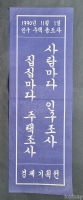 1990년 11월 1일
인구 주택 총조사
사람마다 인구조사
집집마다 주택조사
경제기획원